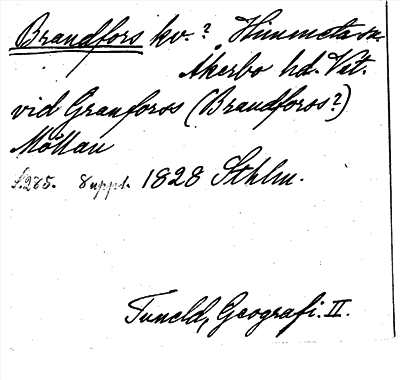 Brandfors kv.? Himmeta sn.
Åkerbo hd. Vstl.
vid Granforos (Brandforos?)
Möllan
S.285. 8 uppl. 1828 Sthlm.
Tuneld, Geografi. II.